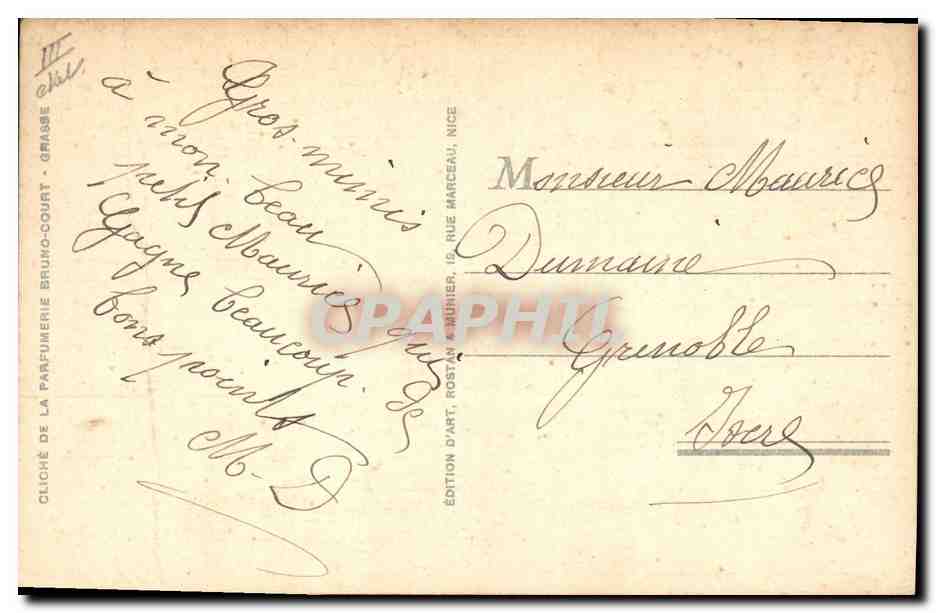 III
CLICHÉ DE LA PARFUMERIE BRUNO-COURT - GRASSE
Gros mimis
à mon beau
petit Maurice qui
gagne beaucoup de
bons points
M-D
ÉDITION D'ART, ROSTAN & MUNIER, 19, RUE MARCEAU, NICE
Monsieur Maurice
Dumaine
Grenoble
Isère
CPAPHIL